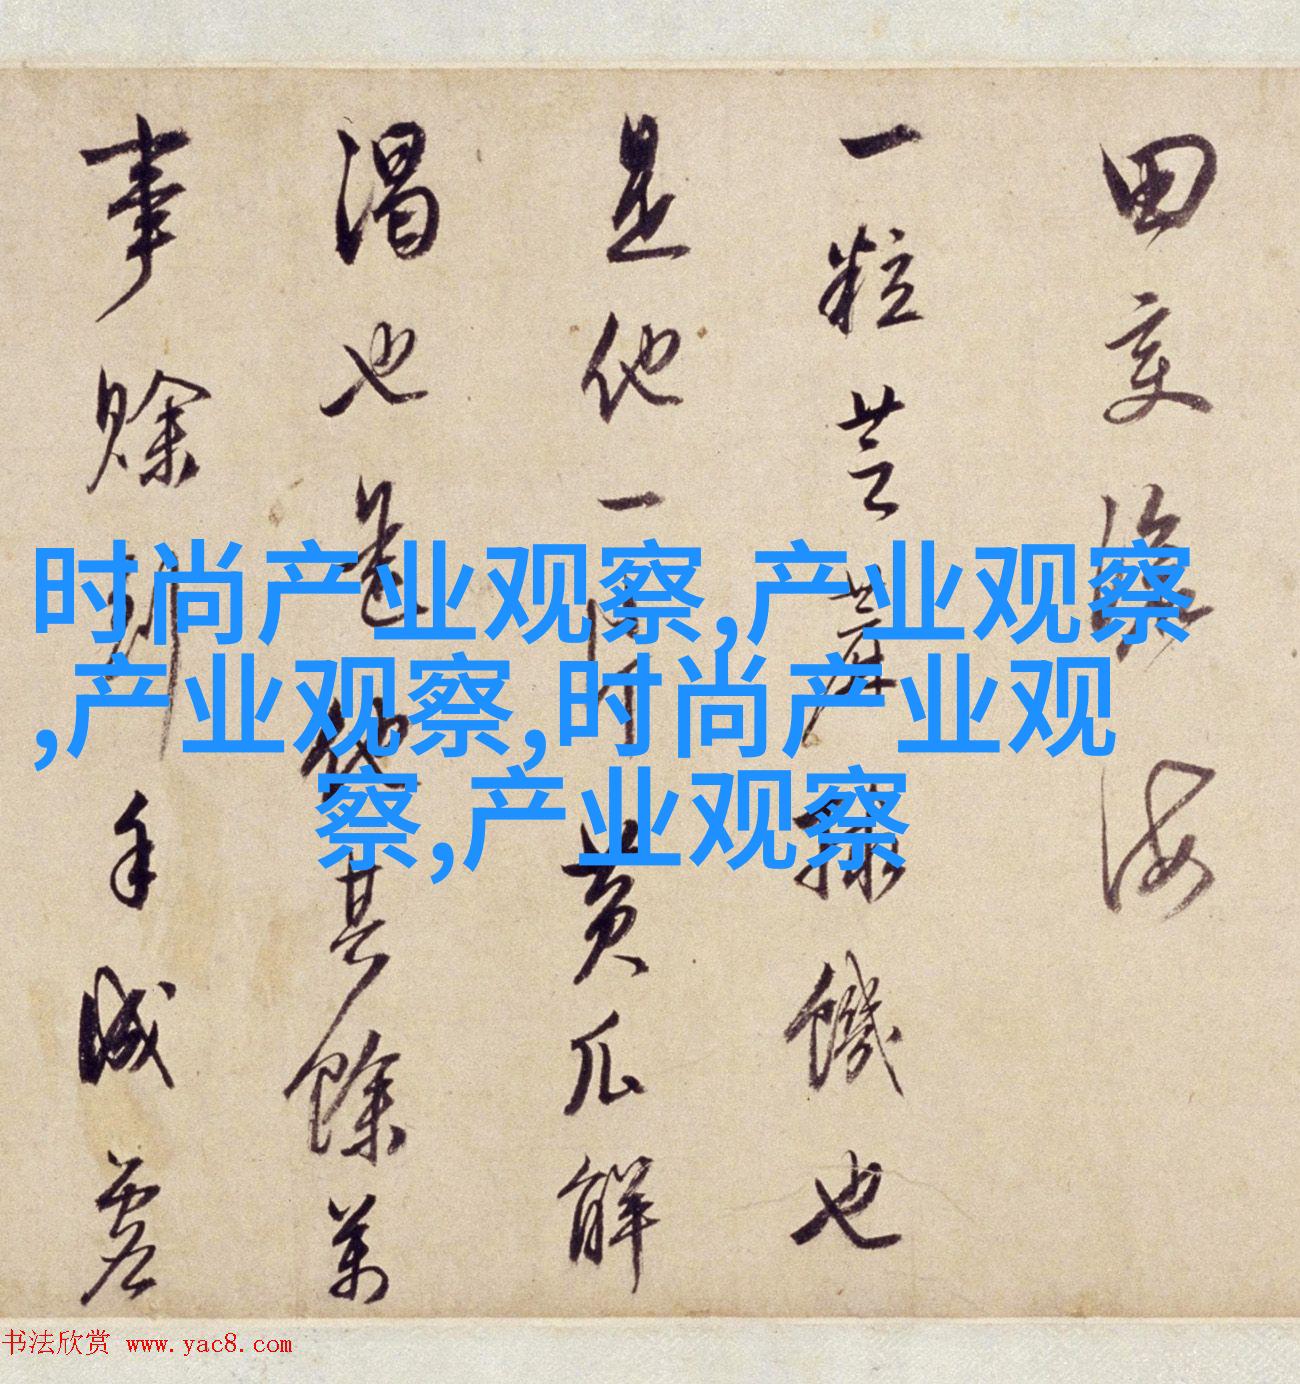 田变海
一粒芝饑也
是他一黄瓜解
渴也其餘萬
事賒手
时尚产业观察,产业观察
,产业观察,时尚产业观
察,产业观察
书法欣赏 www.yac8.com